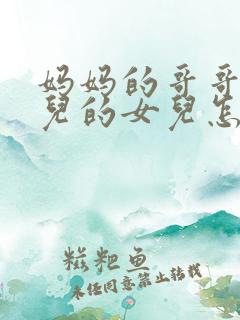 妈妈的哥哥
兒的女兒怎
糍粑鱼
未经同意禁止转载